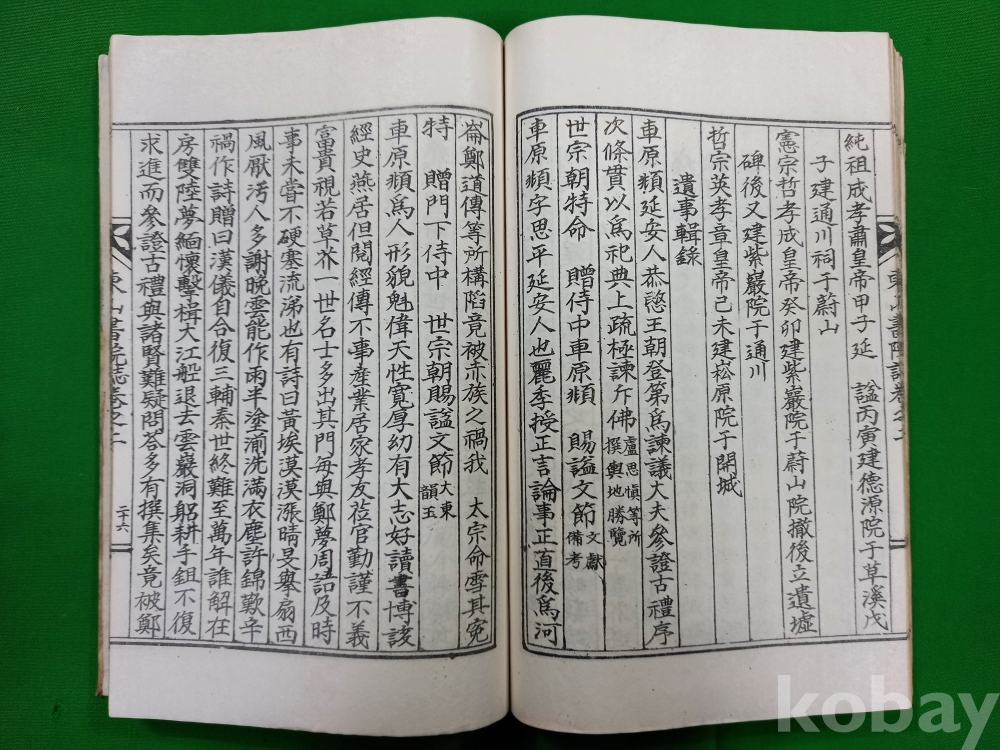 純祖成孝肅皇帝甲子延 謚丙寅建德源院于草溪戊
子建通川祠于蔚山
憲宗哲孝成皇帝癸卯建紫巖院于蔚山院撤後立遺墟
碑後又建紫巖院于通川
哲宗英孝章皇帝己未建崧原院于開城
遺事輯錄
車原頫延安人恭愍王朝登第爲諫議大夫參證古禮序
次條貫以爲祀典上疏極諫斥佛盧思愼等所撰輿地勝覽
世宗朝特命 贈侍中車原頫 賜謚文節文獻備考
車原頫字思平延安人也麗季授正言論事正直後爲河
崙鄭道傳等所構陷竟被赤族之禍我 太宗命雪其冤
特 贈門下侍中 世宗朝賜謚文節大東韻玉
車原頫爲人形貌魁偉天性寬厚幼有大志好讀書博該
經史燕居但閱經傳不事產業居家孝友莅官勤謹不義
富貴視若草芥一世名士多出其門每與鄭夢周語及時
事未嘗不硬塞流涕也有詩曰黃埃漠漠漲晴旻擧扇西
風厭汚人多謝晩雲能作雨半塗湔洗滿衣塵許錦歎辛
禍作詩贈曰漢儀自合復三輔秦世終難至萬年誰解在
房雙陸夢緬懷擊楫大江船退去雲巖洞躬耕手鉏不復
求進而參證古禮與諸賢難疑問荅多有撰集矣竟被鄭
東山書院誌卷之二
二十六
kobay